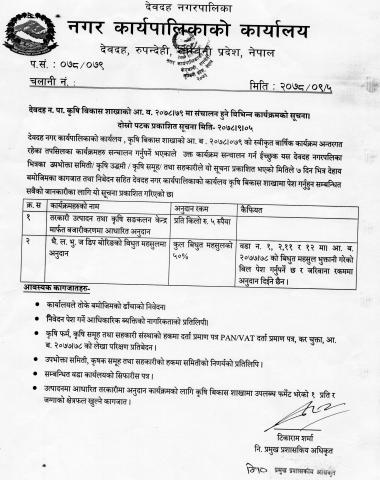 देवदह नगरपालिका
नगर कार्यपालिकाको कार्यालय
देवदह, रुपन्देही, लुम्बिनी प्रदेश, नेपाल
प.सं. : ०७८/०७९
चलानी नं. :
मिति : २०७८/०९/५
देवदह न. पा. कृषि विकास शाखाको आ. व. २०७८।७९ मा संचालन हुने विभिन्न कार्यक्रमको सूचना।
दोस्रो पटक प्रकाशित सूचना मिति- २०७८।९।०५
देवदह नगर कार्यपालिकाको कार्यालय , कृषि विकास शाखाको आ.व. २०७८।०७९ को स्वीकृत बार्षिक कार्यक्रम अन्तरगत
रहेका तपसिलका कार्यक्रमहरु सन्चालन गर्नुपर्ने भएकाले उक्त कार्यक्रम सन्चालन गर्न ईच्छुक यस देवदह नगरपालिका
भित्रका उपभोक्ता समिती/ कृषि उद्धमी / कृषि समूह/ तथा सहकारीले यो सूचना प्रकाशित भएको मितिले ७ दिन भित्र देहाय
बमोजिमका कागजात तथा निबेदन सहित देवदह नगर कार्यपालिकाको कार्यालय कृषि बिकास शाखामा पेश गर्नुहुन सम्बन्धित
सबैको जानकारीका लागि यो सूचना प्रकाशित गरिएको छ।
क्र. स कार्यक्रमहरुको नाम अनुदान रकम कैफियत
१ तरकारी उत्पादन तथा कृषि सङ्कलन केन्द्र मार्फत बजारीकरणमा आधारित अनुदान प्रति किलो रु. ५ रुपैया
२ भै. ल. भु. ज डिप बोरिङको विधुत महसुलमा अनुदान कुल बिधुत महसुलको ५०% वडा न. १, २,११ र १२ मा। आ. व. २०७७।७८ को बिधुत महसुल भुक्तानी गरेको बिल पेश गर्नुपर्ने छ र जरिवाना रकममा अनुदान दिईने छैन।
आवश्यक कागजातहरु-
• कार्यालयले तोके बमोजिमको ढाँचाको निवेदना
• निवेदन पेश गर्ने आधिकारिक ब्यक्तिको नागरिकताको प्रतिलिपी।
• कृषि फर्म, कृषि समूह तथा सहकारी संस्थाको हकमा दर्ता प्रमाण पत्र PAN/VAT दर्ता प्रमाण पत्र, कर चुक्ता, आ. व. २०७७।७८ को लेखा परिक्षण प्रतिबेदन।
• उपभोक्ता समिती, कृषक समूह तथा सहकारीको हकमा समितीको निर्णयको प्रतिलिपि।
• सम्बन्धित वडा कार्यालयको सिफारीस पत्र।
• उत्पादनमा आधारित तरकारीमा अनुदान कार्यक्रमको लागि कृषि बिकास शाखामा उपलब्ध फर्मेट भरेको १ प्रति र जग्गाको क्षेत्रफल खुल्ने कागजात।
टिकाराम शर्मा
नि. प्रमुख प्रशासकिय अधिकृत
नि० प्रमुख प्रशासकिय अधिकृत